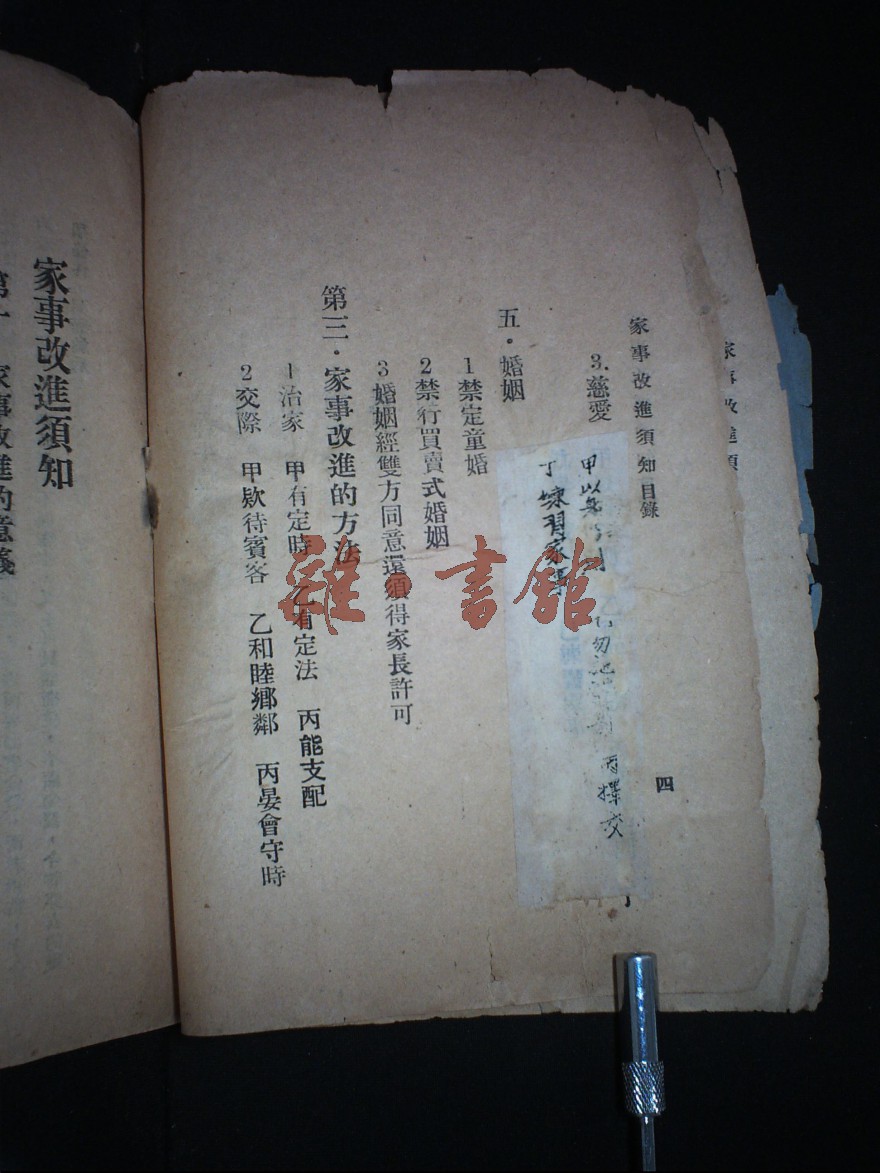 家事改進須知目錄
四
3.慈愛 甲以 乙勿 丙擇交
丁練習家事
五·婚姻
1禁定童婚
2禁行買賣式婚姻
3婚姻經雙方同意還須得家長許可
第三·家事改進的方法
1治家 甲有定時 乙有定法 丙能支配
2交際 甲欵待賓客 乙和睦鄉鄰 丙宴會守時
家事改進須知
家事改進的意義
家事改進須
雜·書館